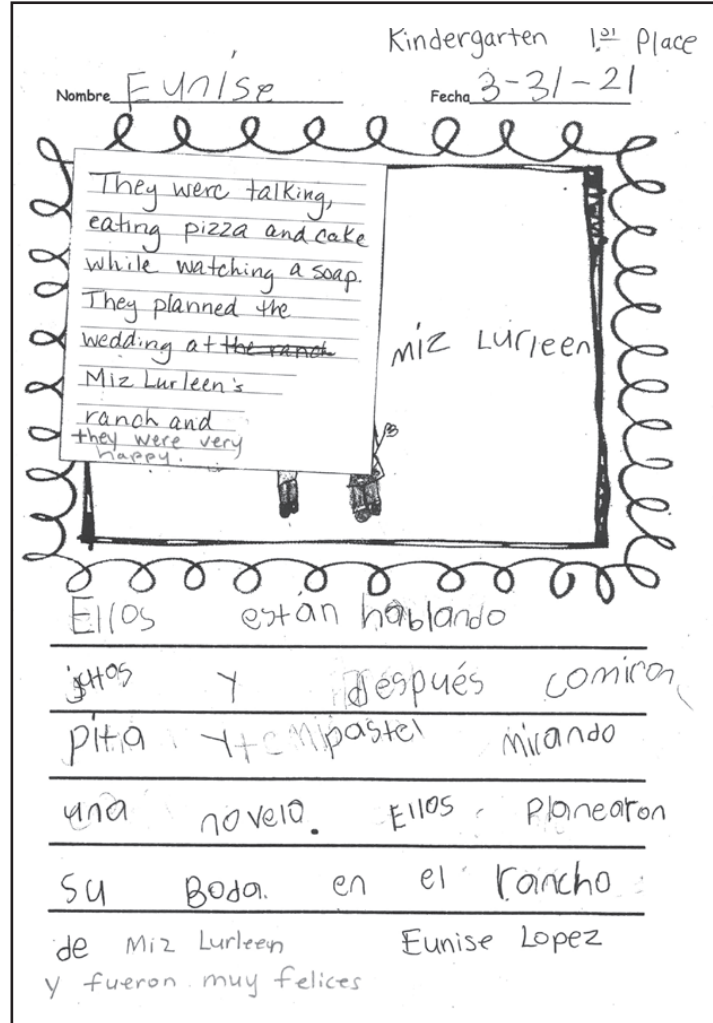 Kindergarten 1st Place
Nombre Eunise Fecha 3-31-21
They were talking,
eating pizza and cake
while watching a soap.
They planned the
wedding at the ranch
Miz Lurleen's
ranch and
they were very
happy.
miz Lurleen
Ellos están hablando
y después comiron
pitia y pastel mirando
una novela. Ellos Planearon
su Boda. en el rancho
de Miz Lurleen Eunise Lopez
y fueron muy felices